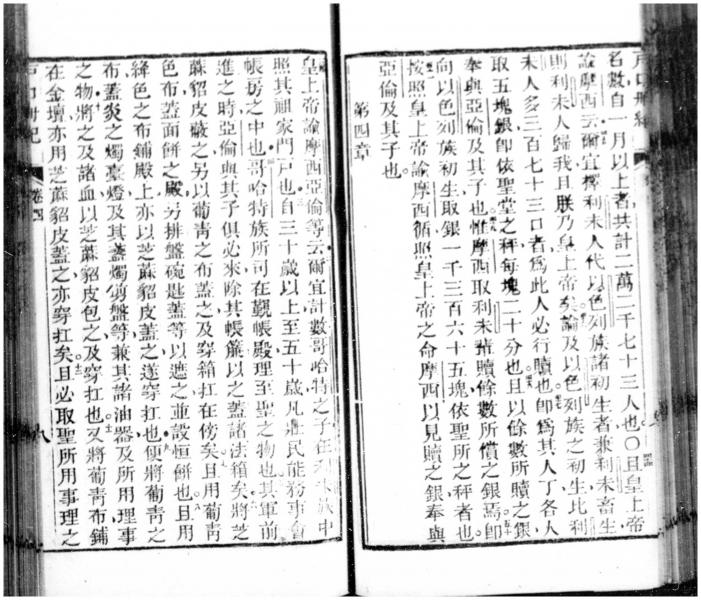 戶口冊紀
名數自一月以上者共計二萬二千七十三人也〇且皇上帝
諭摩西云爾宜擇利未人代以色列族諸初生者兼利未畜生
則利未人歸我且朕乃皇上帝矣論及以色列族之初生比利
未人多三百七十三口者為此人必行贖也卽為其人丁各人
取五塊銀卽依聖堂之秤每塊二十分也且以餘數所贖之銀
奉與亞倫及其子也惟摩西取利未贖餘數所償之銀焉卽
向以色列族初生取銀一千三百六十五塊依聖所之秤者也
按照皇上帝諭摩西循照皇上帝之命摩西以見贖之銀奉與
亞倫及其子也
第四章
皇上帝諭摩西亞倫等云爾宜計數哥哈特之子在利未族中
照其祖家門戶也自三十歲以上至五十歲凡壯民能務事會
帳房之中也哥哈特族所司在覲帳殿理至聖之物也其軍前
進之時亞倫與其子俱必來除其帳簾以之蓋諸法箱矣將芝
蔴貂皮蔽之另以葡青之布蓋之及穿箱扛在傍矣且用葡青
色布蓋面餅之殿另排盤碗匙蓋等以遮之並設恒餅也且用
絳色之布鋪殿上亦以芝蔴貂皮蓋之遂穿扛也便將葡青之
布蓋炎之燭臺燈及其盞燭剪盤等兼其諸油器及所用理事
之物將之及諸皿以芝蔴貂皮包之及穿扛也又將葡青布鋪
在金壇亦用芝蔴貂皮蓋之亦穿扛矣且必取聖所用事理之
戶口冊紀 卷四 八